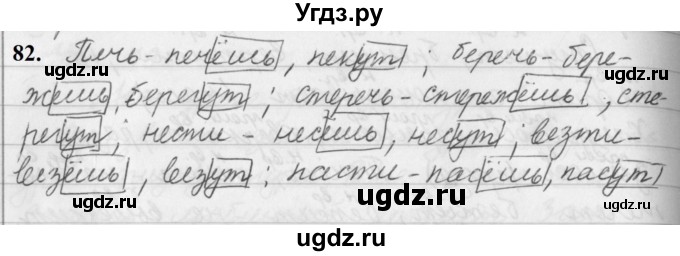 Угдз.ру
82. Печь - печёшь, пекут; беречь - бере-
жёшь, берегут; стеречь - стережёшь, сте-
ugdz.ru ugdz.ru
регут; нести - несёшь, несут; везти -
везёшь, везут; пасти - пасёшь, пасут
ugdz.ru ugdz.ru
ugdz.ru